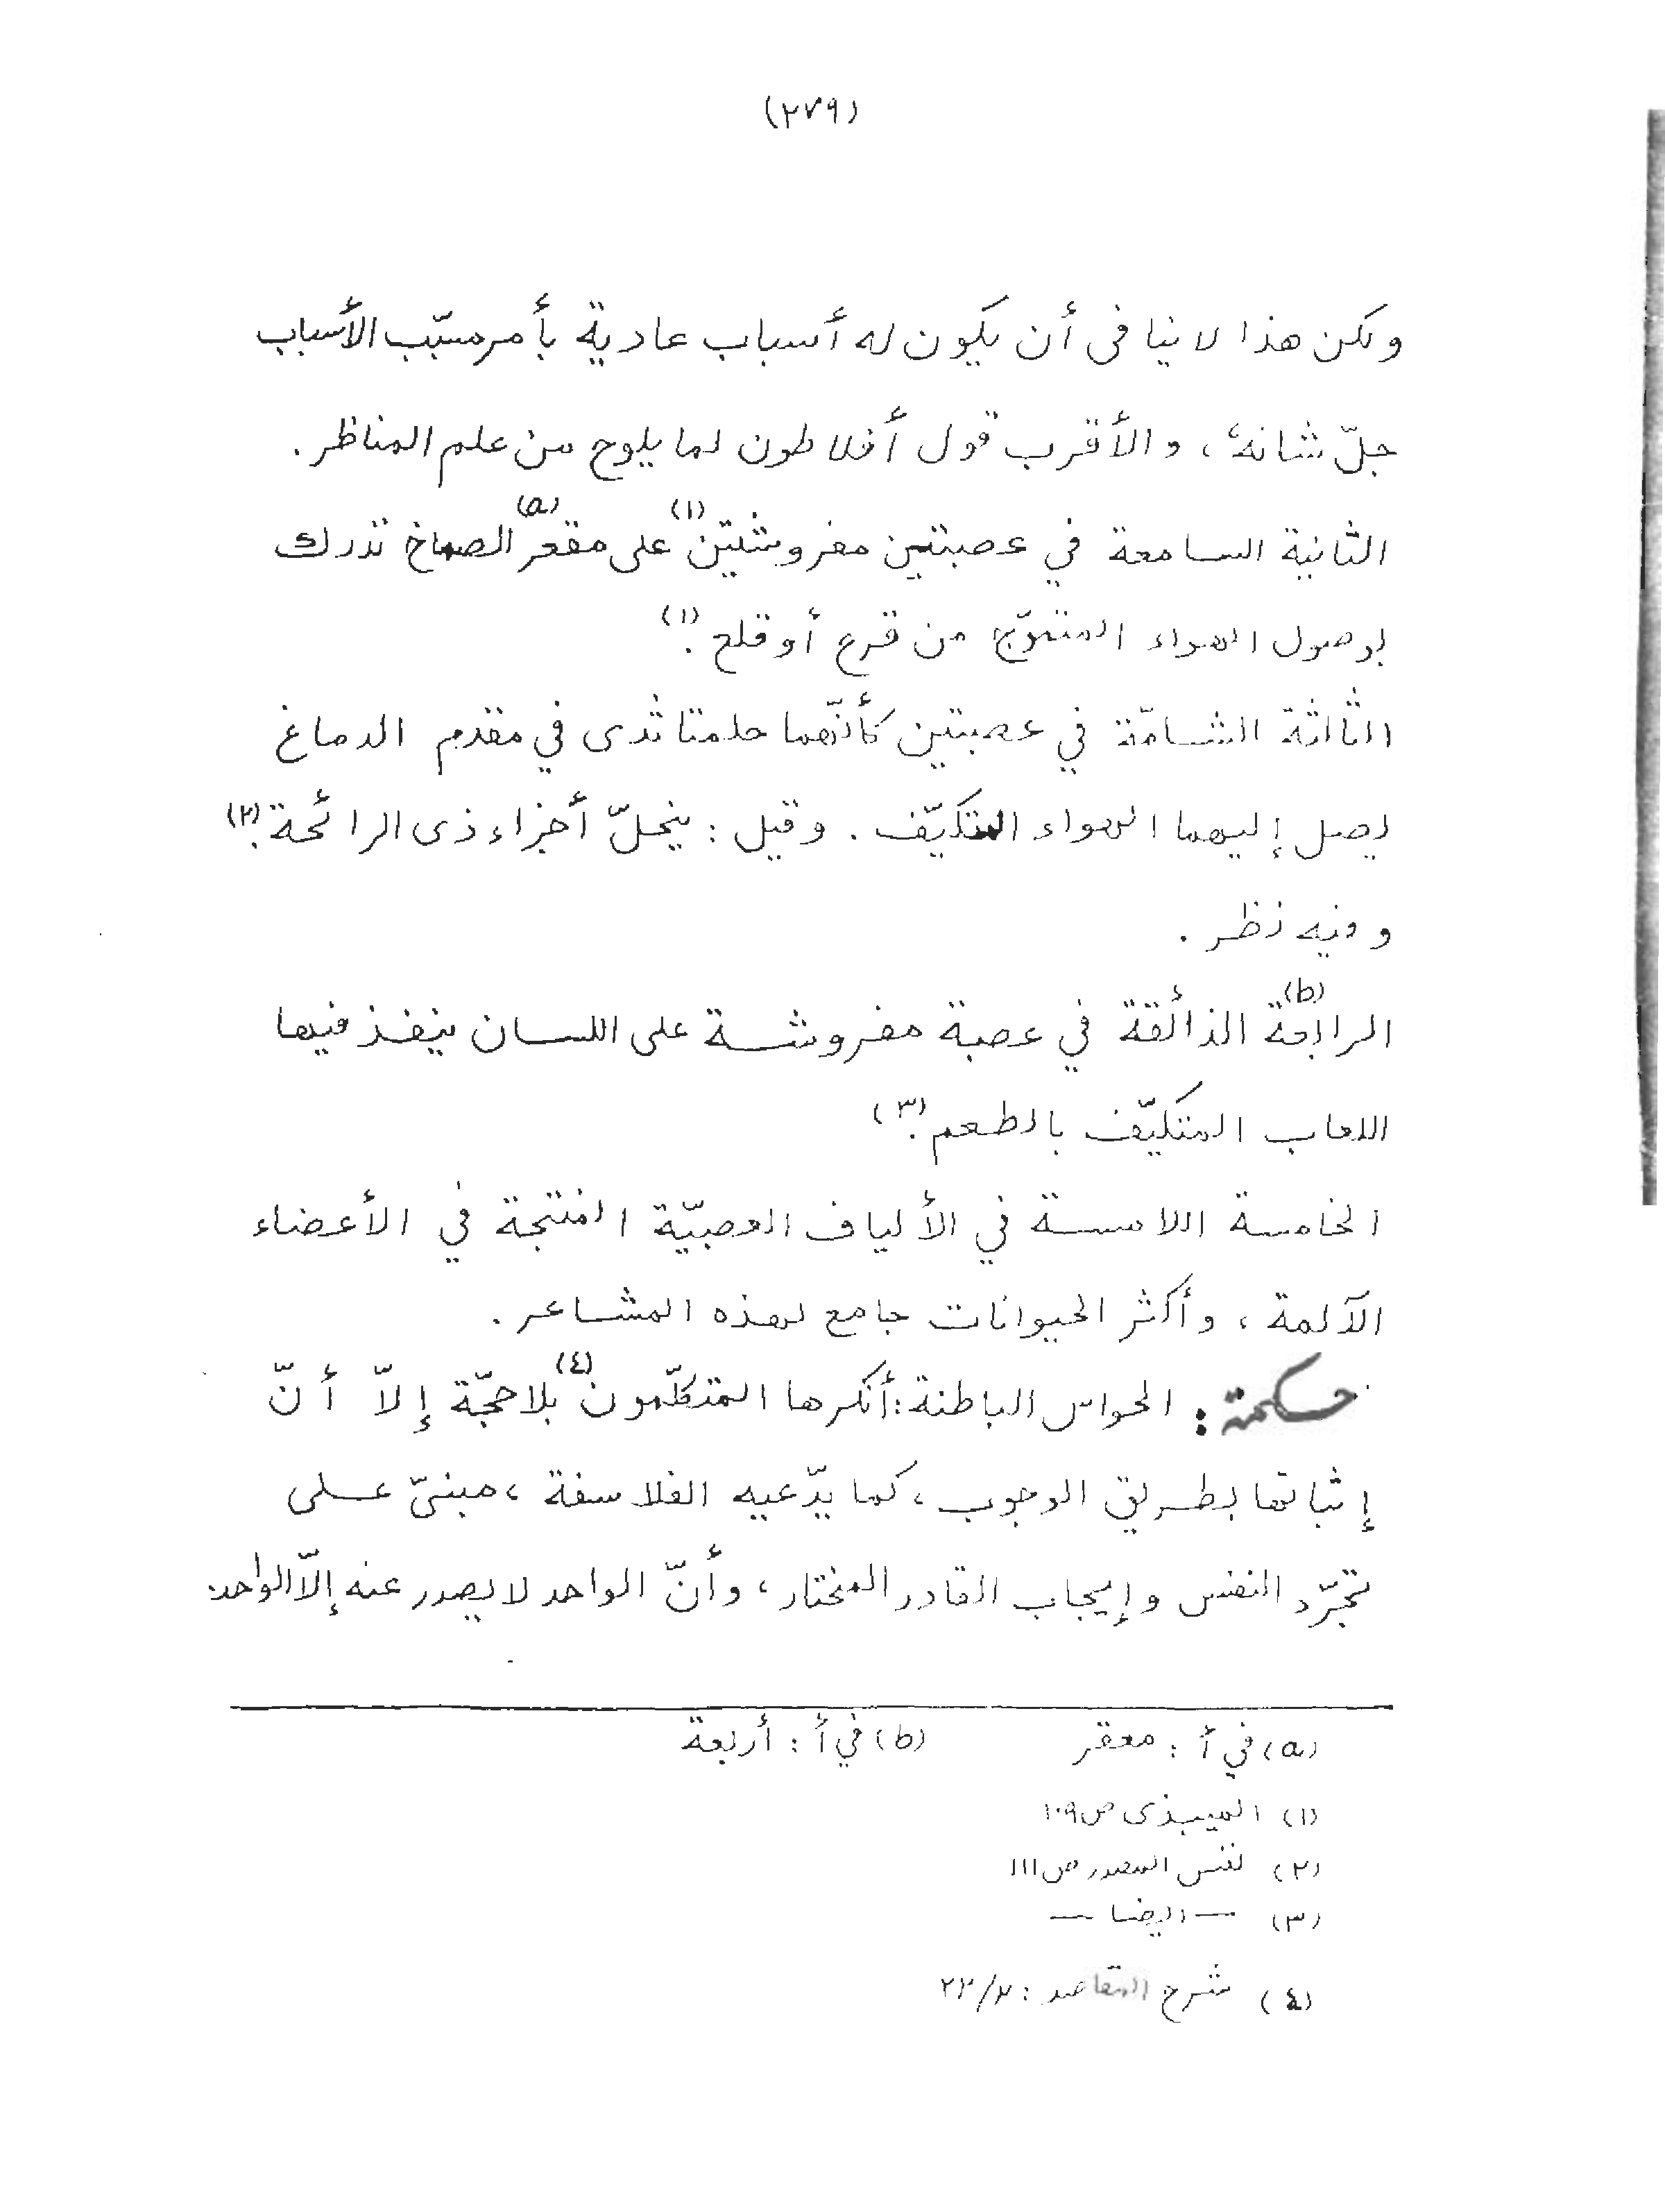 (٢٧٩)
ولكن هذا لا ينافى أن يكون له أسباب عادية بأمر مسبّب الأسباب
جلّ شانه، والأقرب قول أفلاطون لما يلوح من علم المناظر.
الثانية السامعة في عصبتين مفروشتين(١) على مقعر(a) الصماخ تدرك
بوصول الهواء المتموّج من قرع أو قلع.(١)
الثالثة الشامّة في عصبتين كأنّهما حلمتا ثدى في مقدم الدماغ
يصل إليهما الهواء المتكيّف. وقيل: ينحلّ أجزاء ذى الرائحة.(٢)
وفيه نظر.
الرابعة(b) الذائقة في عصبة مفروشة على اللسان ينفذ فيها
اللعاب المتكيّف بالطعم.(٣)
الخامسة اللامسة في الألياف العصبيّة المنتجة في الأعضاء
الآلمة، وأكثر الحيوانات جامع لهذه المشاعر.
حكمة: الحواس الباطنة: أنكرها المتكلّمون(٤) بلا حجّة إلاّ أنّ
إثباتها بطريق الوجوب، كما يدّعيه الفلاسفة، مبنىّ على
تجرّد النفس وإيجاب القادر المختار، وأنّ الواحد لا يصدر عنه إلاّ الواحد
(a) في أ: معقر (b) في أ: أربعة
(١) الميبذى ص١٠٩
(٢) نفس المصدر ص١١١
(٣) — ايضا —
(٤) شرح المقاصد: ٢/٢٣